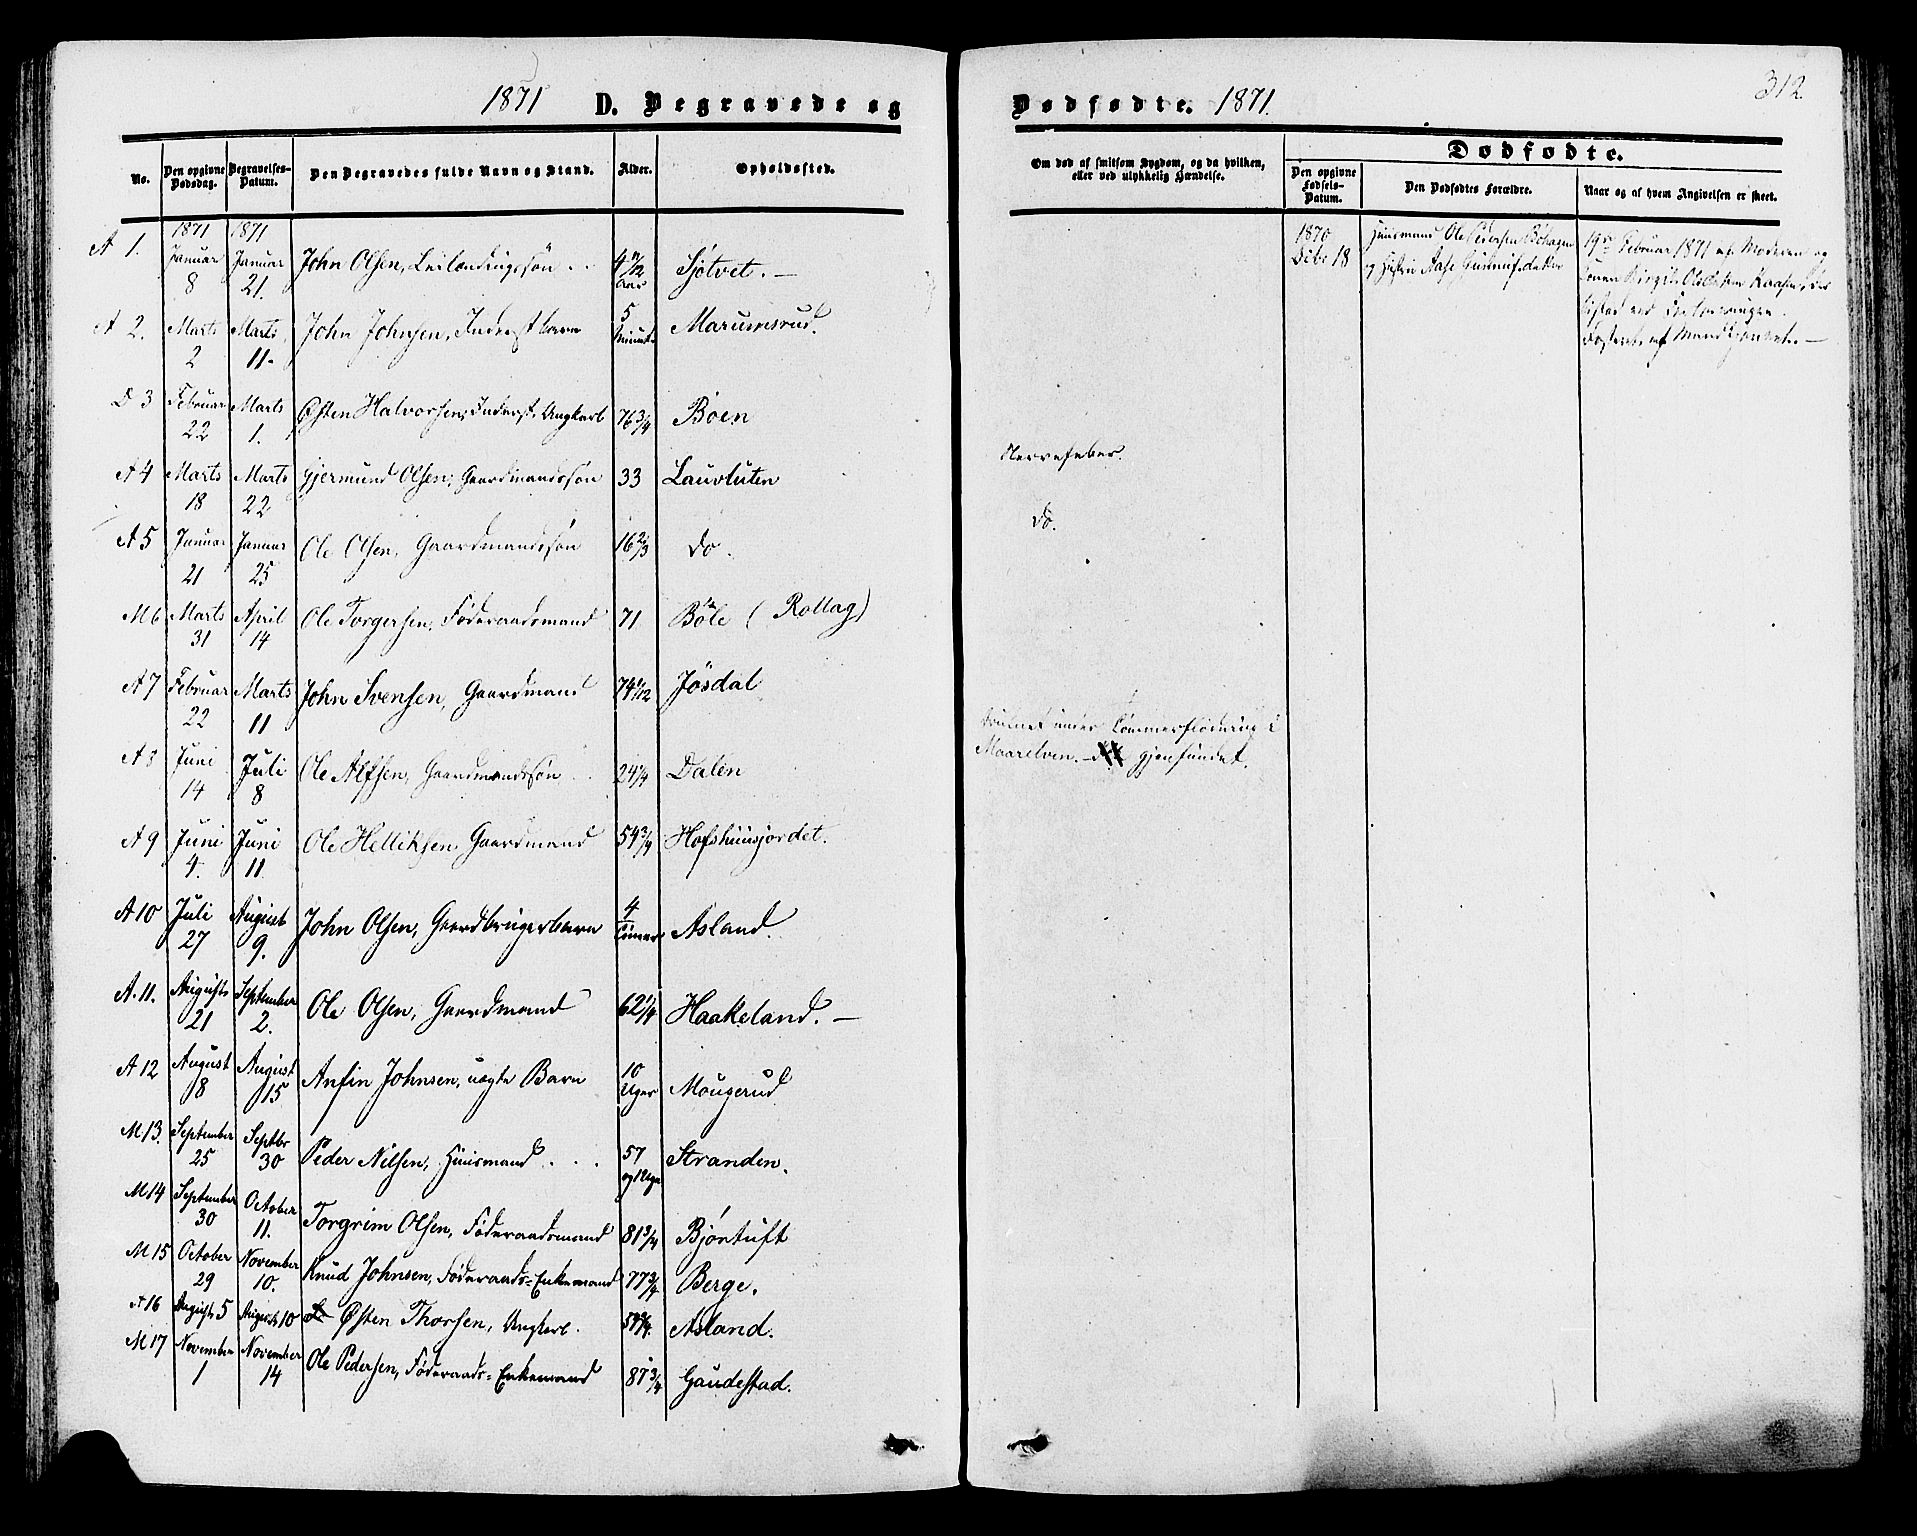 1871 D. Begravede og
No. Den opgivne Dødsdag. Begravelses-Datum. Den Begravedes fulde Navn og Stand. Alder. Opholdssted.
A 1. 1871 Januar 8 1871 Januar 21. John Olsen, Leilændingssøn 4 11/12 aar Sjøtvet. —
A 2. Marts 2 Marts 11. John Johnsen, Inderstbarn 5 Minut. Marumsrud.
D 3 Februar 22 Marts 1. Østen Halvorsen, Inderst, Ungkarl 76 3/4 Bøen
A 4 Marts 18 Marts 22 Gjermund Olsen, Gaardmandssøn 33 Lauvluten
A 5 Januar 21 Januar 25 Ole Olsen, Gaardmandssøn 16 2/3 do.
M 6 Marts 31 April 14 Ole Torgersen, Føderaadsmand 71 Bøle (Rollag)
A 7 Februar 22 Marts 11 John Svensen, Gaardmand 74 1/12 Jøsdal
A 8 Juni 14 Juli 8 Ole Alfsen, Gaardmandssøn 24 1/4 Dalen
A 9 Juni 4. Juni 11 Ole Helliksen Gaardmand 54 3/4 Hofshuusjordet.
A 10 Juli 27 August 9. John Olsen, Gaardbrugerbarn 4 Timer Asland.
A. 11. August 21 September 2. Ole Olsen, Gaardmand 62 1/4 Haakeland. —
A 12 August 8 August 15 Anfin Johnsen, uægte Barn 10 Uger Mougerud
M. 13. September 25 Septbr 30 Peder Nilsen, Huusmand 57 og 1 Uge Stranden.
M 14 September 30 October 11. Torgrim Olsen, Føderaadsmand 81 3/4 Bjørtuft
M 15 October 29 November 10. Knud Johnsen, Føderaads-Enkemand 77 3/4 Berge.
A 16 August 5 August 10 Østen Thorsen, Ungkarl. Asland.
M 17 November 1 November 14 Ole Pedersen, Føderaads-Enkemand 87 3/4 Gaudestad.
Dødfødte. 1871.
312.
Om død af smitsom Sygdom, og da hvilken, eller ved ulykkelig Hændelse.
Dødfødte.
Den opgivne Fødsels-Datum. Den Dødfødtes Forældre. Naar og af hvem Angivelsen er skeet.
1870 Decbr 18 Huusmand Ole Pedersen Bøhagen
og Hustru Aase Gunnufsdatter
19de Februar 1871 af Moderen og
Konen Birgit
ved
Fosteret af Mandkjønnet. —
Nervefeber.
do.
druknet under Tømmerflødning i
Maarelven. — gjenfundet.